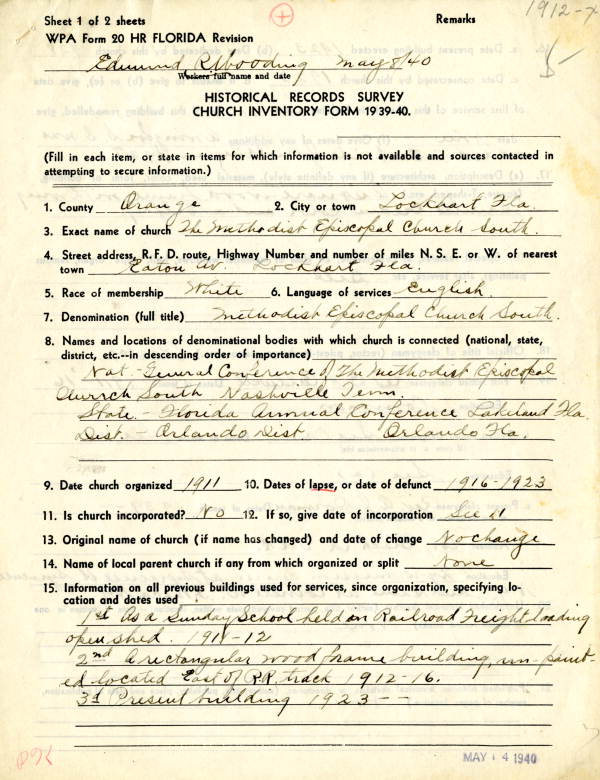 Sheet 1 of 2 sheets
Remarks
1912-x
WPA Form 20 HR FLORIDA Revision
5-
Edmund R. Wooding May 8/40
Workers full name and date
HISTORICAL RECORDS SURVEY
CHURCH INVENTORY FORM 1939-40.
(Fill in each item, or state in items for which information is not available and sources contacted in
attempting to secure information.)
1. County Orange 2. City or town Lockhart Fla.
3. Exact name of church The Methodist Episcopal Church South.
4. Street address, R. F. D. route, Highway Number and number of miles N. S. E. or W. of nearest
town Eaton Av. Lockhart Fla.
5. Race of membership White 6. Language of services English.
7. Denomination (full title) Methodist Episcopal Church South.
8. Names and locations of denominational bodies with which church is connected (national, state,
district, etc.--in descending order of importance)
Nat.- General Conference of The Methodist Episcopal
Church South Nashville Tenn.
State.- Florida Annual Conference Lakeland Fla.
Dist.- Orlando Dist. Orlando Fla.
9. Date church organized 1911 10. Dates of lapse, or date of defunct 1916-1923
11. Is church incorporated? No 12. If so, give date of incorporation See 11
13. Original name of church (if name has changed) and date of change No change
14. Name of local parent church if any from which organized or split None
15. Information on all previous buildings used for services, since organization, specifying lo-
cation and dates used
1st As a Sunday School held in Railroad Freight loading
open shed. 1911-12
2nd A rectangular wood frame building, un-paint-
ed located East of R.R. track 1912-16.
3d Present building 1923 --
MAY 14 1940